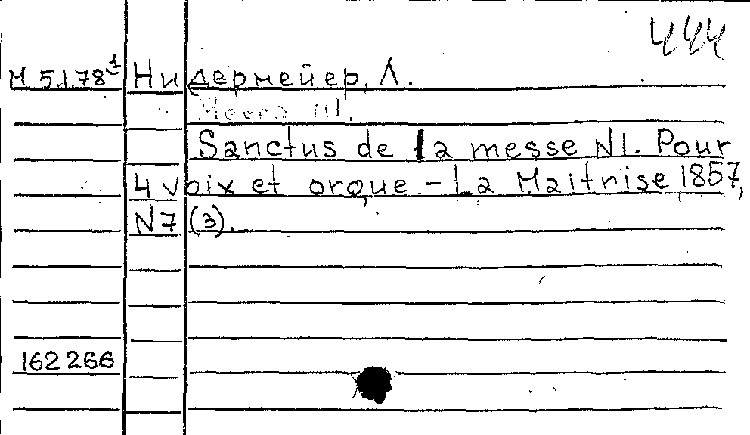 444
М 5178¹ Нидермейер, Л.
Месса N1.
Sanctus de la messe N1. Pour
4 voix et orgue - La Maitrise 1857,
N7 (3).
162266